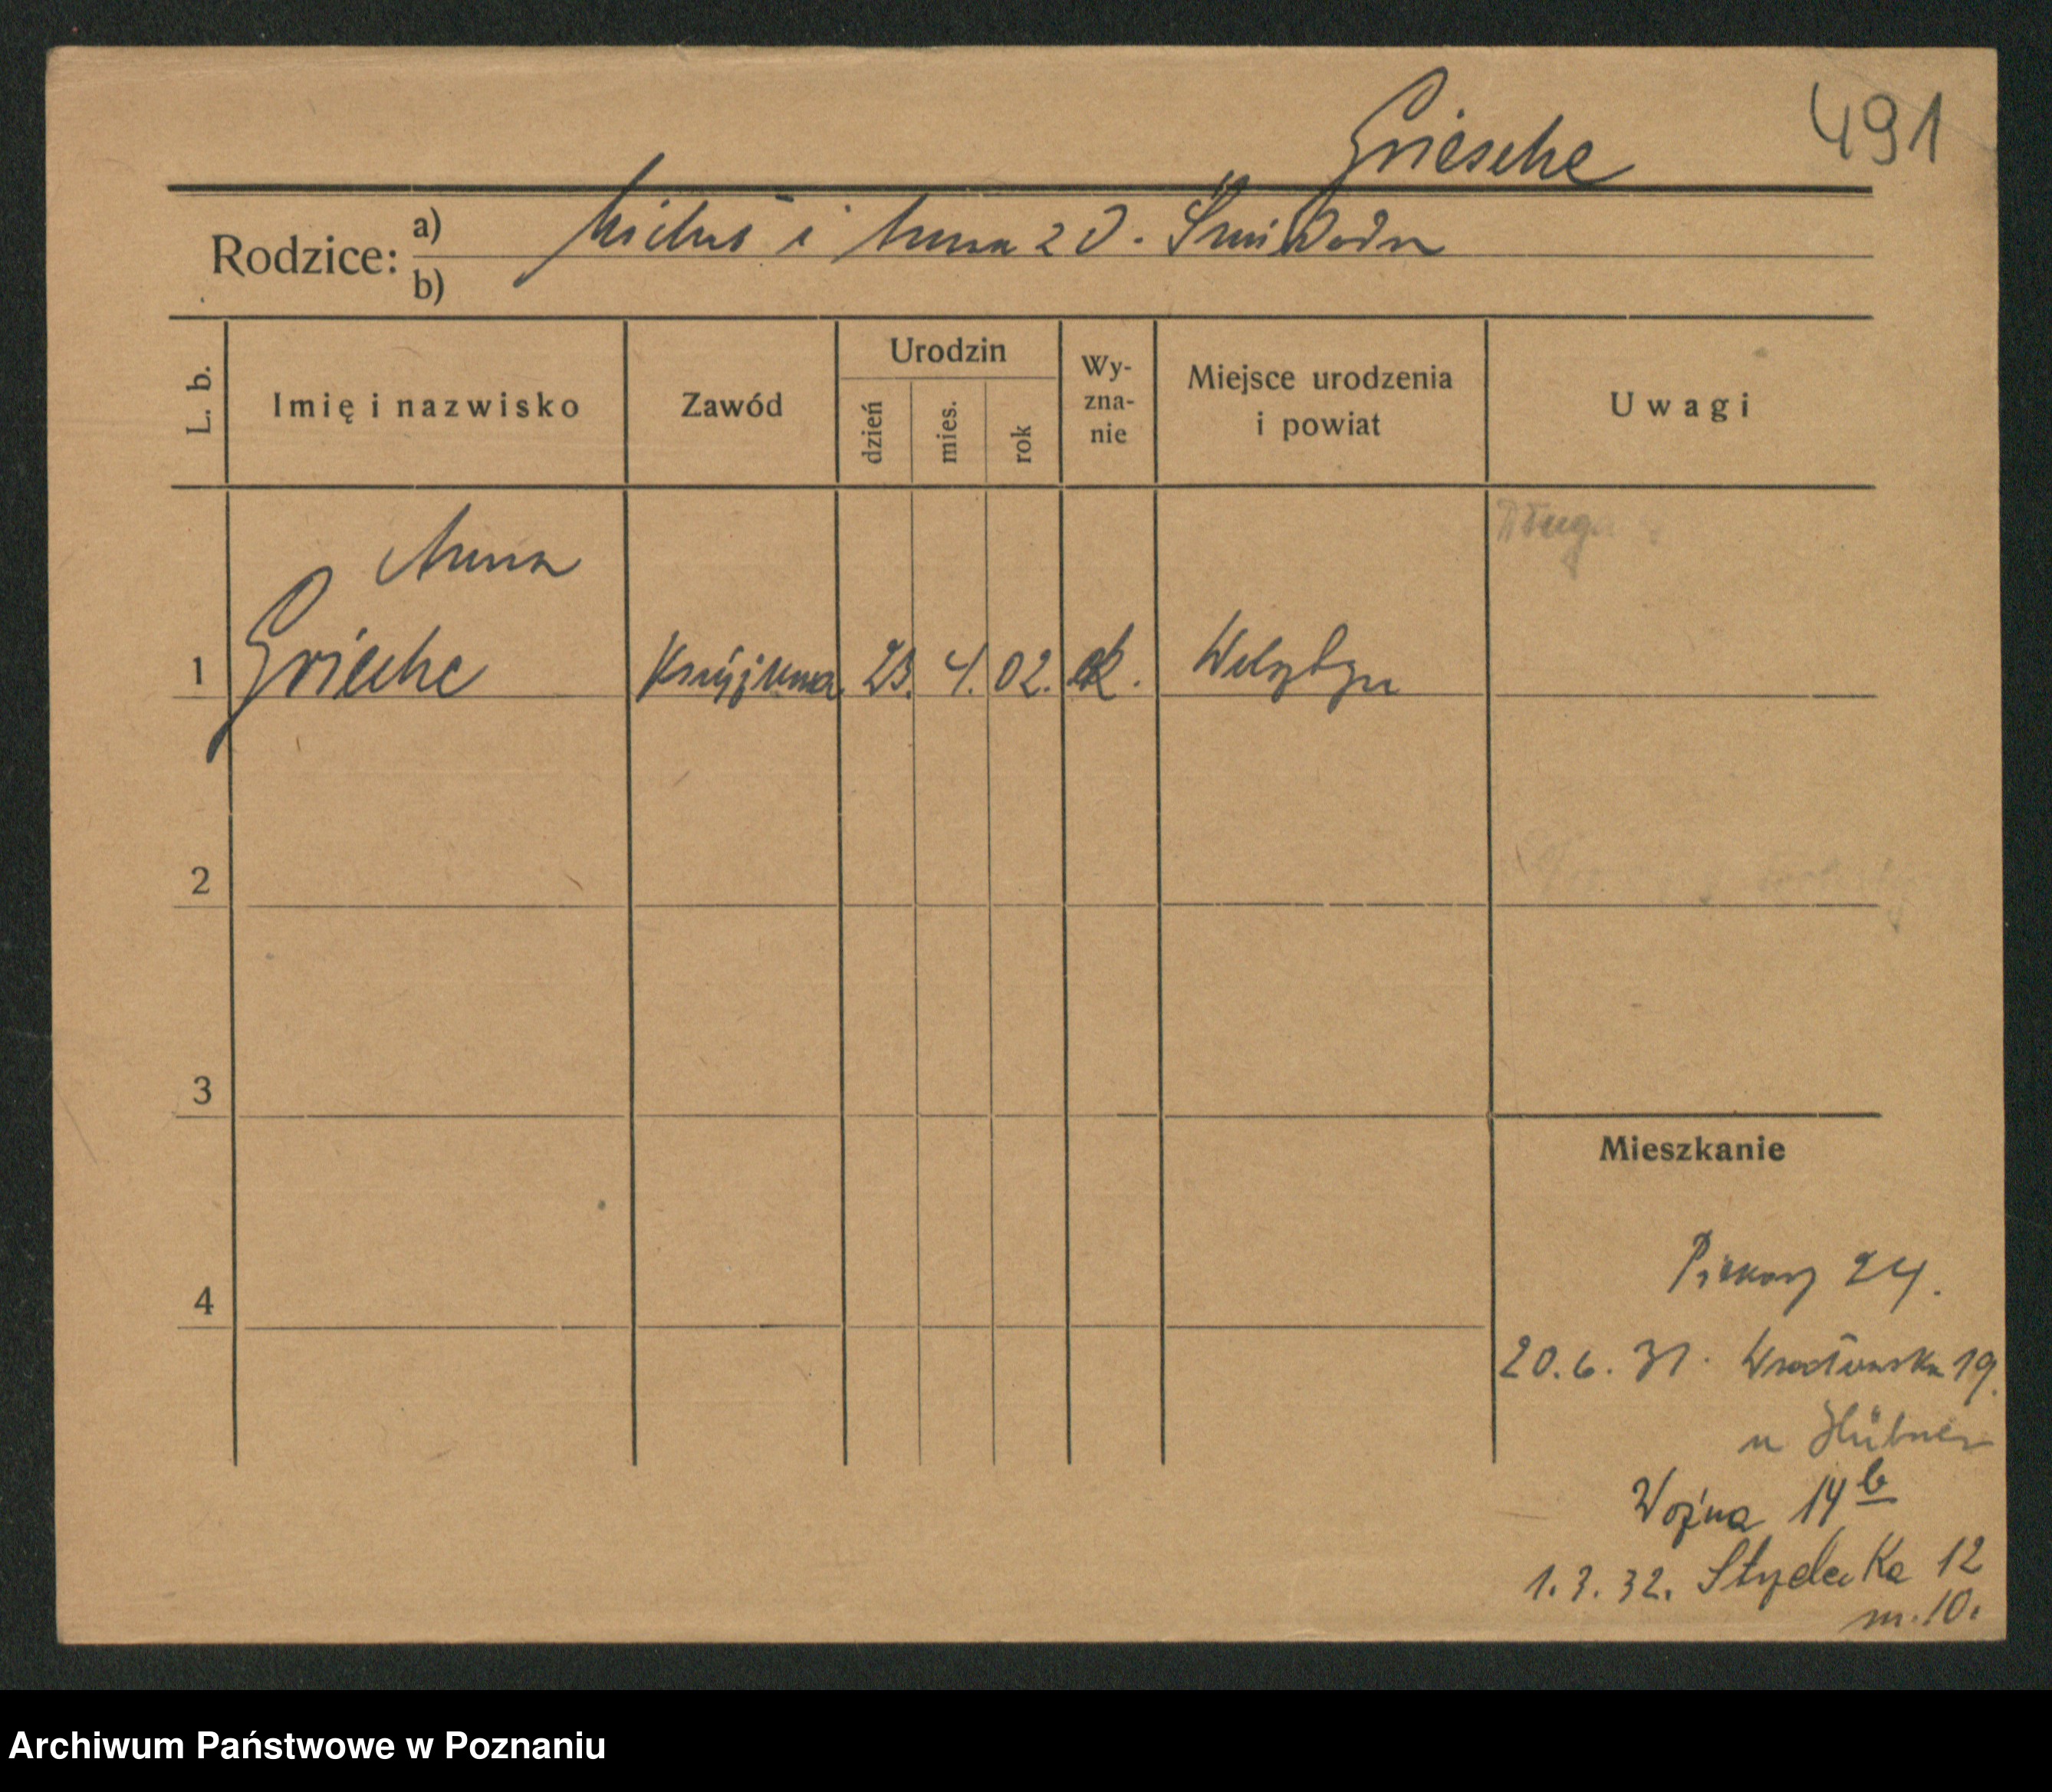 Griesche
491
Rodzice: a)
i Anna z D.
b)
L. b.
Imię i nazwisko
Zawód
Urodzin
dzień
mies.
rok
Wy-
zna-
nie
Miejsce urodzenia
i powiat
Uwagi
Długa
Anna
1 Griesche 23. 4. 02.
2
3
Mieszkanie
4
Piekary 24.
20.6.31. Wrocławska 19.
u Hübner
Woźna 14 b
1.3.32. Strzelecka 12
m. 10.
Archiwum Państwowe w Poznaniu